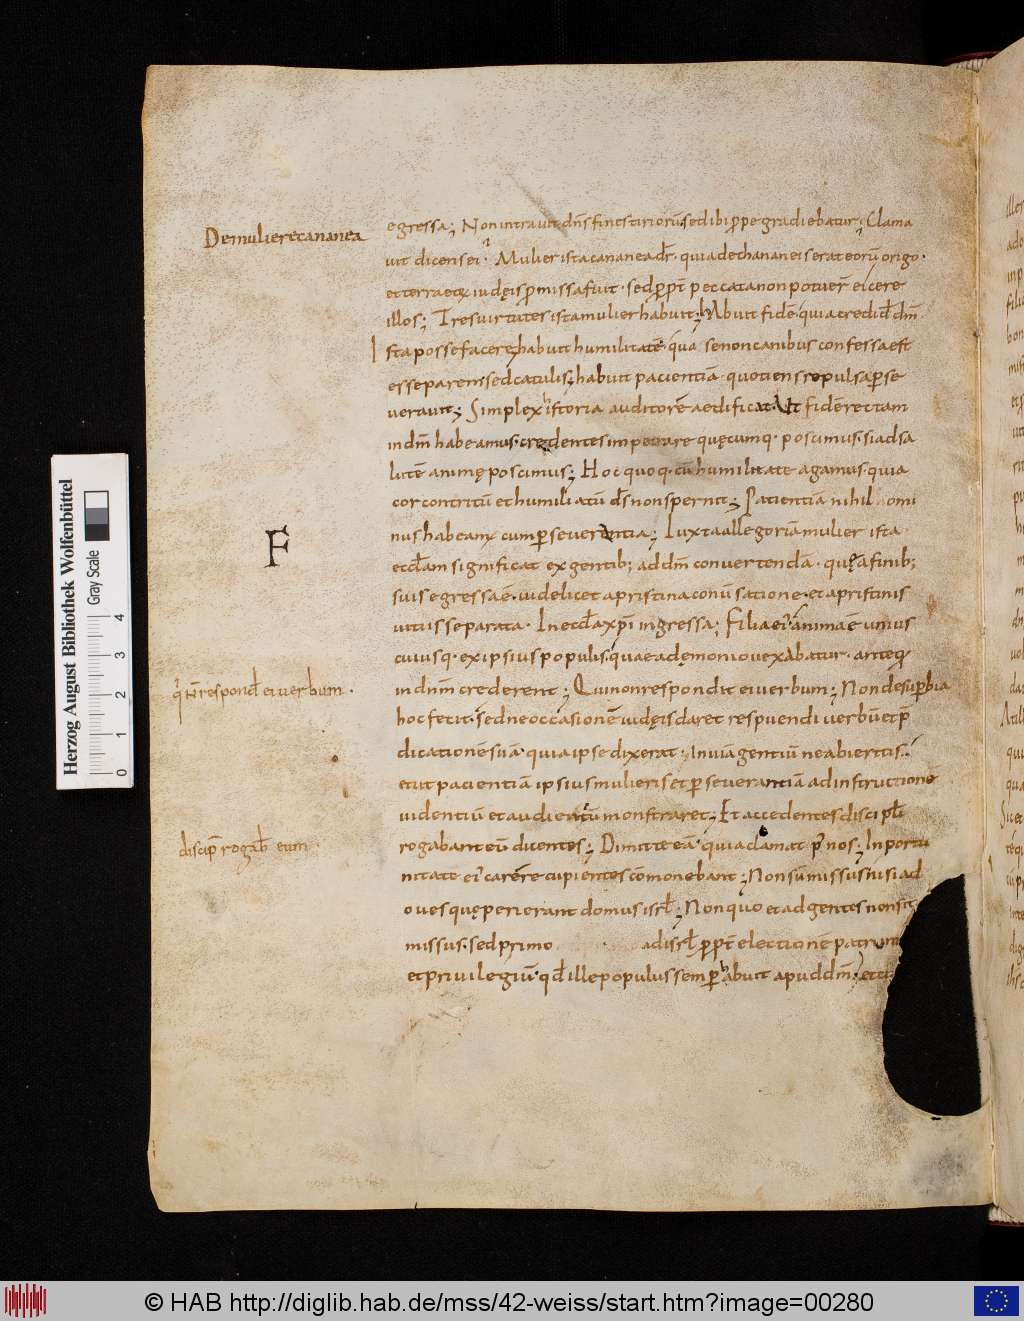 De muliere cananea
egressa; Non intravit dn̄s fines tiriorū sed ibi ꝓpe gradiebatur; Clama
vit dicens ei· Mulier ista cananea dr̄· quia de chananeis erat eorū origo·
et terra etx iudęis ꝓmissa fuit· sed ꝓpt̄ peccata non potuer̄ eicere
illos; Tres virtutes ista mulier habuit; habuit fidē quia credid̄ dm̄
Ista posse facere; habuit humilitatē· quia se non canibus confessa est
esse parem sed catulis; habuit pacientiā· quotiens repulsa ꝑse
veravit; Simplex historia auditorē aedificat· Ut fidē rectam
in dm̄ habeamus· credentes impetrare quęcumq· poscimus· si ad sa
lutē animę poscimus; Hoc quoq· cū humilitate agamus· quia
cor contritū et humiliatū ds̄ non spernit; Patientiā nihil omi
nus habeamꝰ cum ꝑseverentia; Iuxta allegoriā mulier ista
F
eccl̄am significat ex gentib; ad dm̄ convertendā· quęa finib;
suis egressa ē· videlicet a pristina conūsatione· et a pristinis
vitiis separata· In eccl̄a xp̄i ingressa; Filia ei' anima ē unius
cuiusq· ex ipsius populis· quae a dęmonio vexabatur· anteq̄
q̄ n̄ respond̄ ei verbum·
in dn̄m crederent; Qui non respondit ei verbum; Non de suꝑbia
hoc fecit· sed ne occasionē iudęis daret respuendi verbū et p̄
dicationē suā· quia ipse dixerat· In viā gentiū ne abieritis·
et ut pacientiā ipsius mulieris et ꝑseverantiā ad instructione
videntiū et audientiū monstraret; Et accedentes discipl̄i
discip̄ rogab̄ eum·
rogabant eū dicentes; Dimitte eā· quia clamat p' nos; Inportu
nitate ei' carere cupientes cōmonebant; Non sū missus nisi ad
oves quę perierant domus isrl̄; Non quo et ad gentes non sit
missus· sed primo ad isrl̄ ꝓpt̄ electionē patrum
et privilegiū· qd̄ ille populus semꝑ habuit apud dm̄·
Herzog August Bibliothek Wolfenbüttel
Gray Scale
0 1 2 3 4
© HAB http://diglib.hab.de/mss/42-weiss/start.htm?image=00280